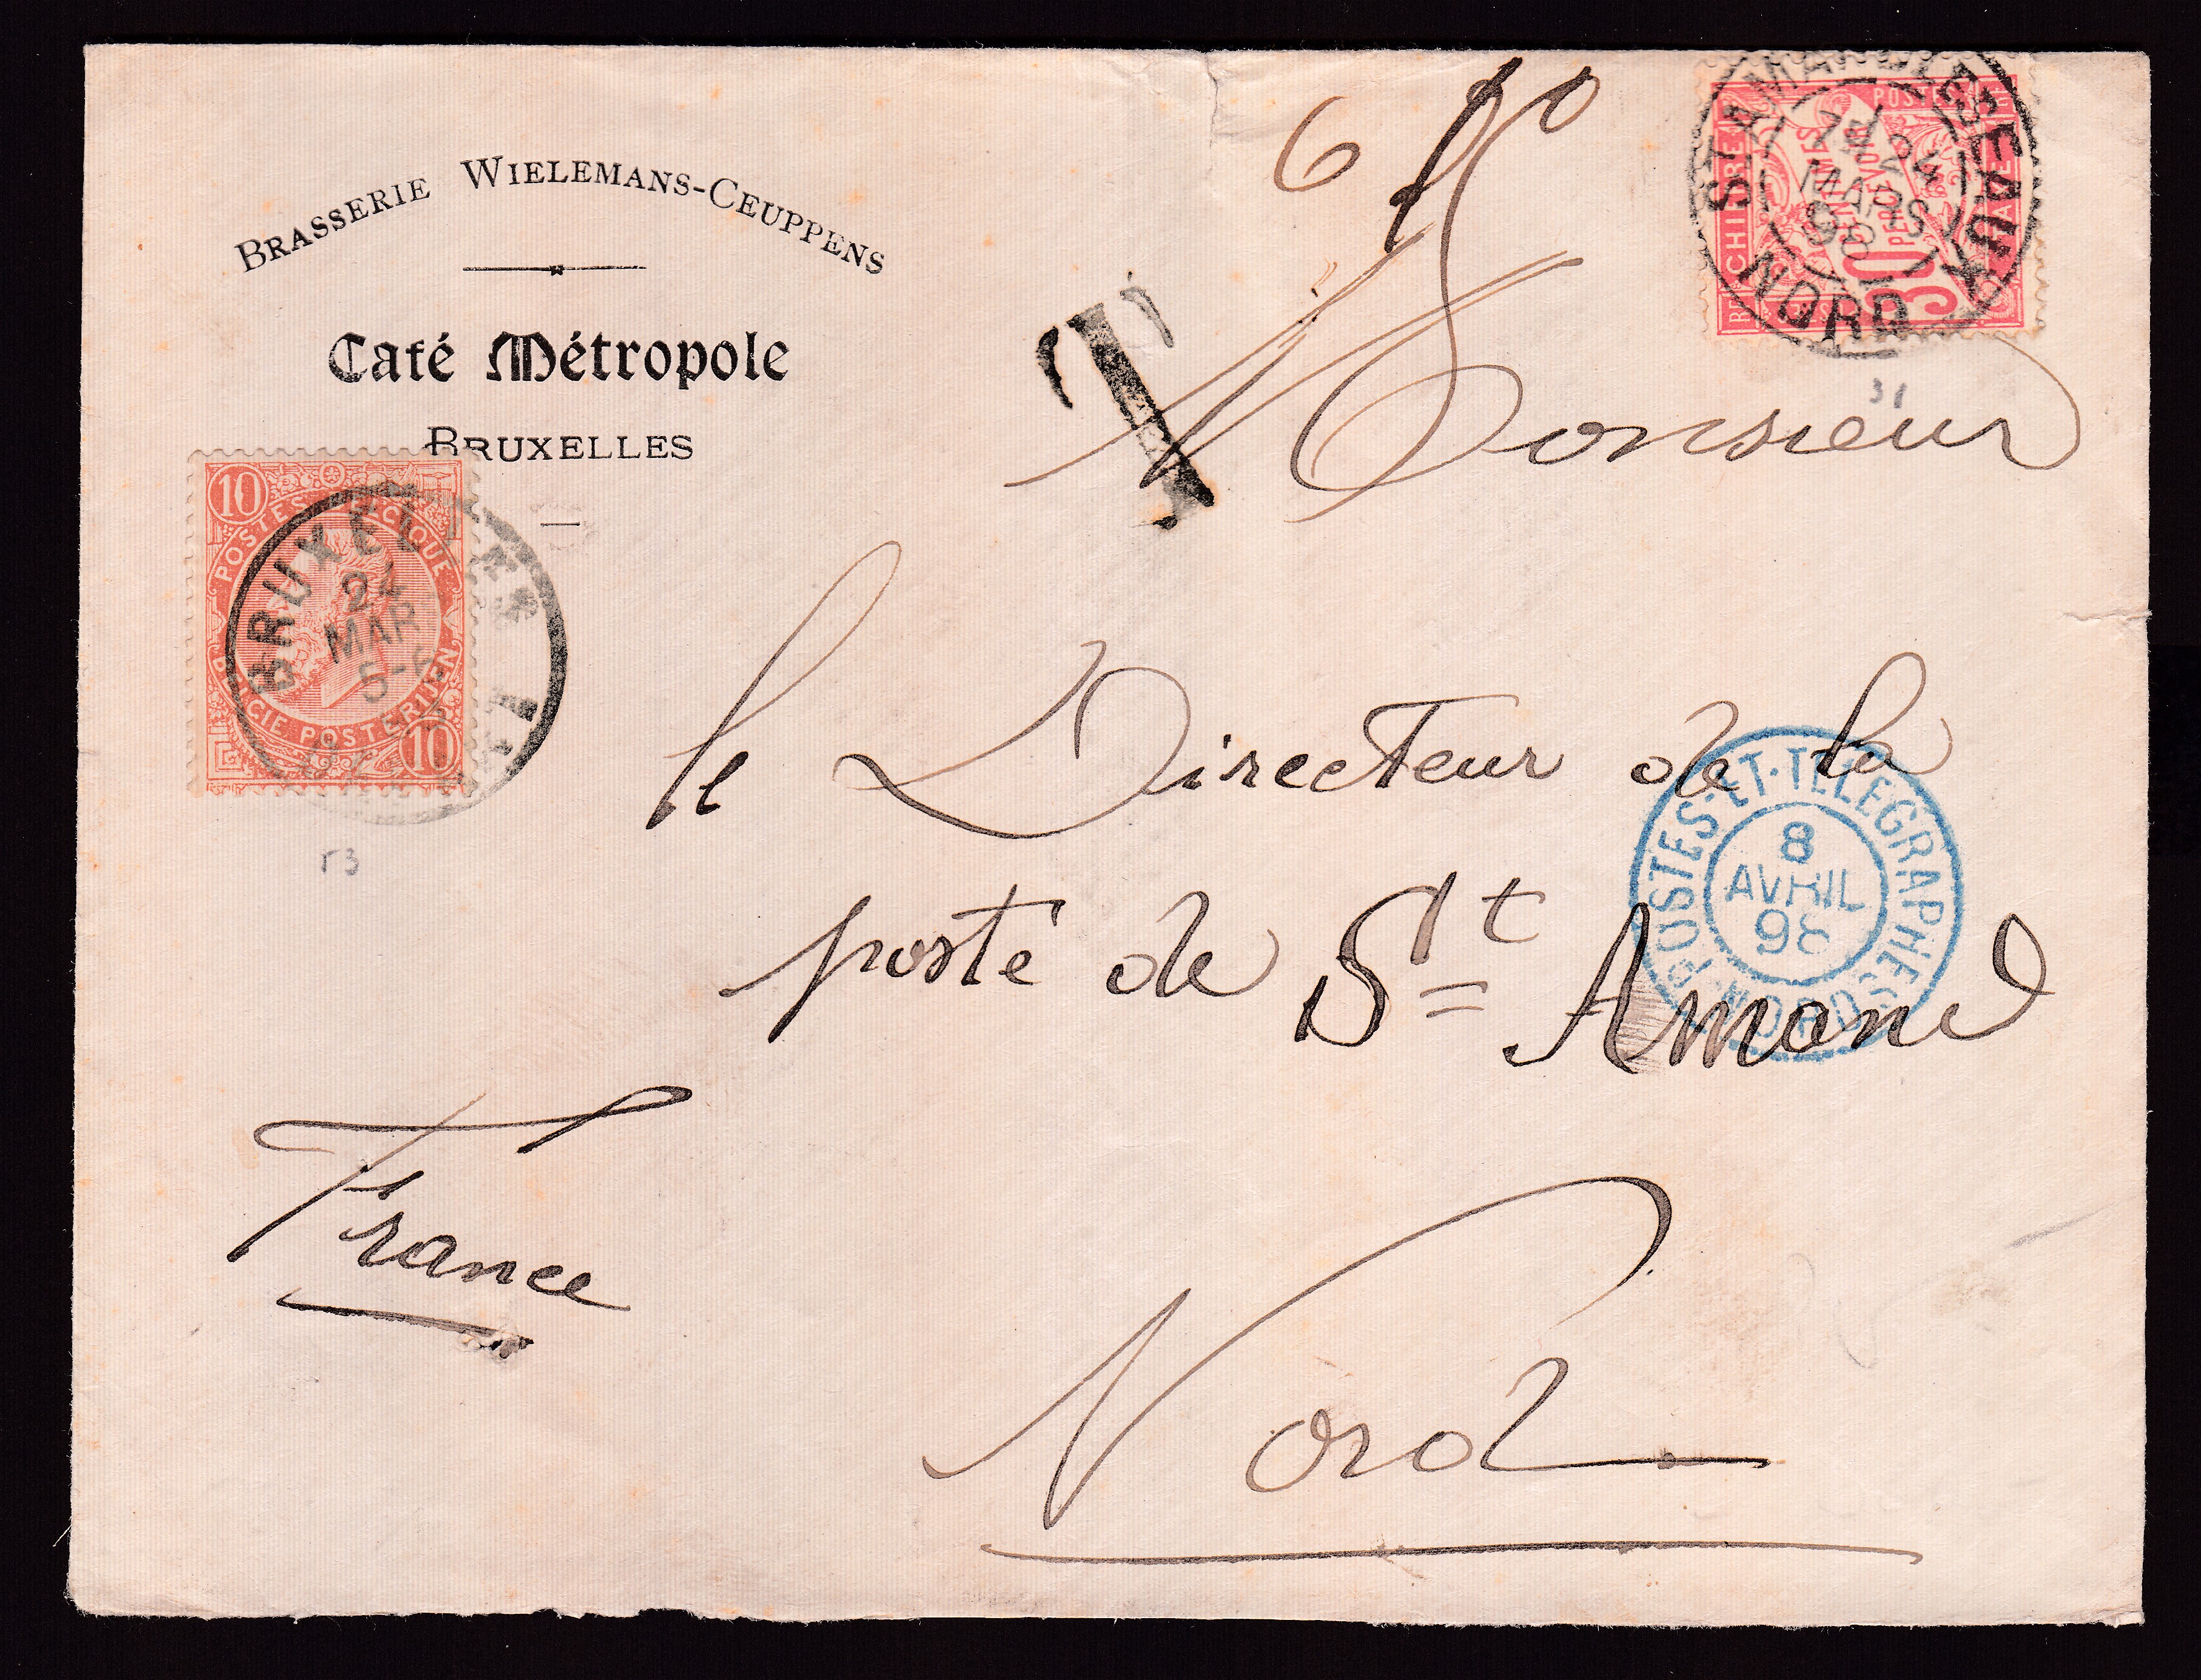 BRASSERIE WIELEMANS-CEUPPENS
Café Métropole
BRUXELLES
10
POSTES BELGIQUE
BELGIE POSTERIJEN
10
BRUXELLES 1
24
MAR
T
Monsieur
le Directeur de la
poste de St Amand
France
Nord
POSTES
A PERCEVOIR
30
ST AMAND LES EAUX
24
MARS
98
NORD
31
POSTES·ET·TELEGRAPHES
8
AVRIL
98
NORD